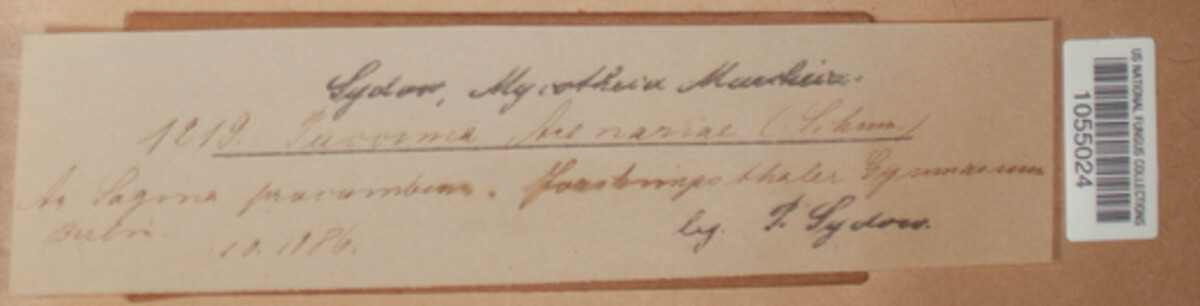 Sydow, Mycotheca Marchica.
1219. Puccinia Arenariae (Schum.)
Sagina procumbens. Joachimsthaler Gymnasium
Berlin.
10. 1886.
leg. P. Sydow.
US NATIONAL FUNGUS COLLECTIONS
1055024